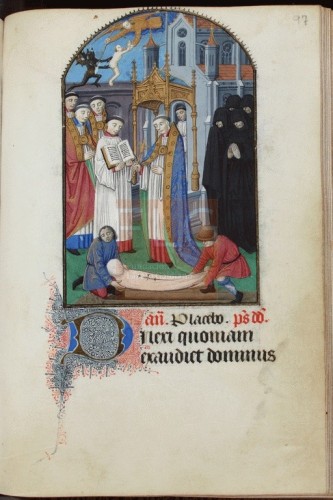 añ. Placebo. ps̄ dd̄.
Dilexi quoniam
exaudiet dominus